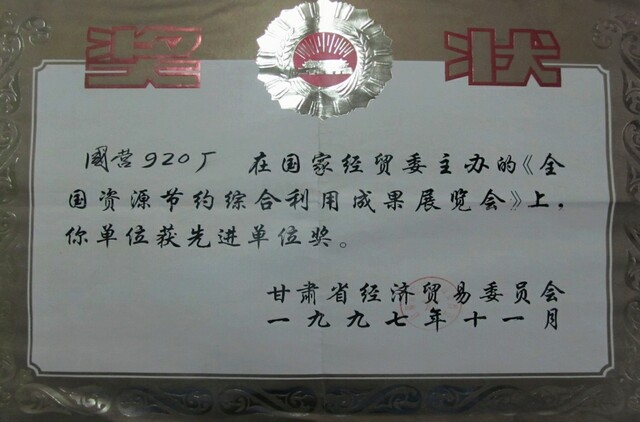 奖状
國营920厂 在国家经贸委主办的《全
国资源节约综合利用成果展览会》上,
你单位获先进单位奖。
甘肃省经济贸易委员会
一九九七年十一月